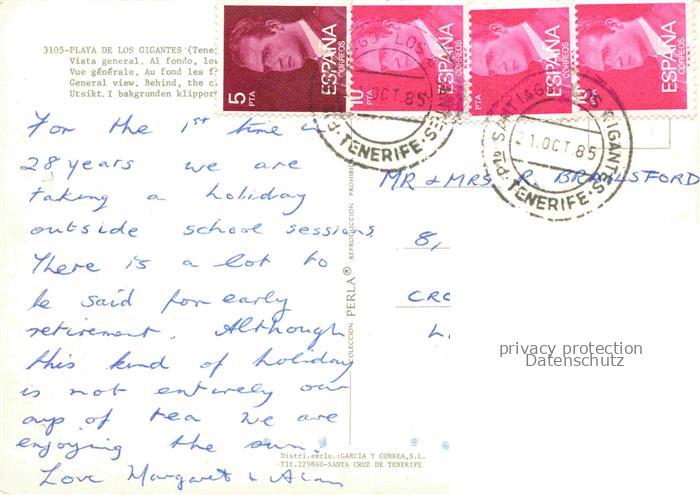 3105-PLAYA DE LOS GIGANTES (Tene
Vista general. Al fondo, lo
Vue générale. Au fond les f
General view. Behind, the c
Utsikt. I bakgrunden klippor
5 PTA ESPAÑA CORREOS
10 PTA ESPAÑA CORREOS
ESPAÑA CORREOS
ESPAÑA CORREOS
OCT 85
TENERIFE
21.OCT.85
TENERIFE
For the 1st time in
28 years we are
taking a holiday
outside school sessions.
There is a lot to
be said for early
retirement. Although
this kind of holiday
is not entirely our
cup of tea we are
enjoying the sun.
Love Margaret & Alan
COLECCION PERLA® REPRODUCCION PROHIBI
Distri.exclu.:GARCIA Y CORREA,S.L.
Tlf.229840-SANTA CRUZ DE TENERIFE
MR & MRS R. BRAILSFORD
8,
CRO
L
privacy protection
Datenschutz